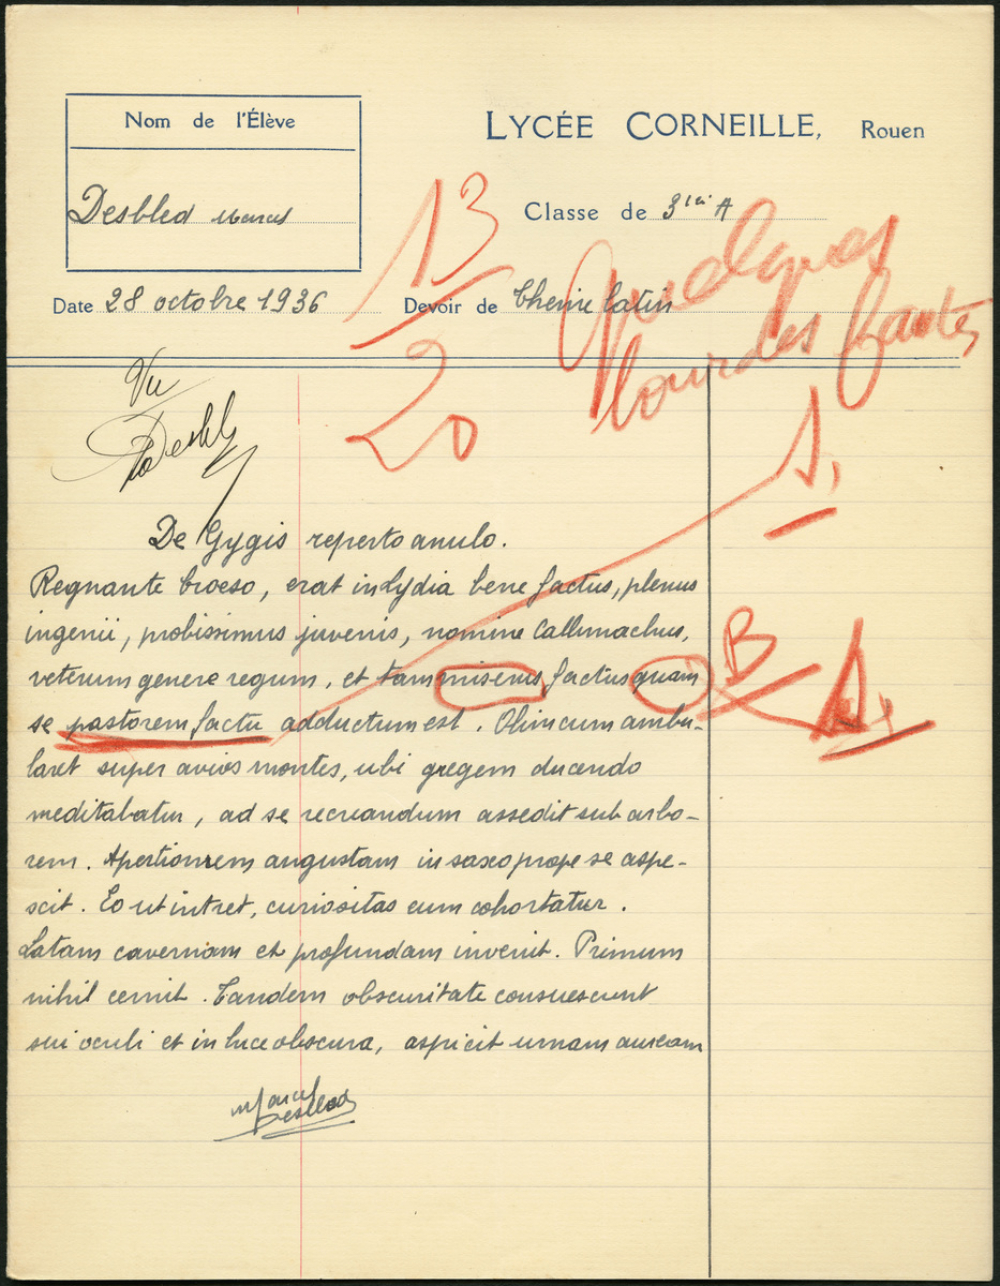 Nom de l'Élève
LYCÉE CORNEILLE, Rouen
Desbled Marcel
Classe de 3ième A
Date 28 octobre 1936
Devoir de Thème latin
13
20
Quelques
lourdes fautes
Vu
Desbled
S.
De Gygis reperto anulo.
Regnante Croeso, erat in Lydia bene factus, plenus
ingenii, probissimus juvenis, nomine Callimachus,
veterum genere regum, et tam miserus factus quam
B
A
se pastorem factu adductum est. Olim cum ambu-
laret super avios montes, ubi gregem ducendo
meditabatur, ad se recreandum assedit sub arbo-
rem. Apertionem angustam in saxo prope se aspe-
scit. Eo ut intret, curiositas eum cohortatur.
Latam cavernam et profundam invenit. Primum
nihil cernit. Tandem obscuritate consuescunt
sui oculi et in luce obscura, aspicit urnam auream
Marcel
Desbled